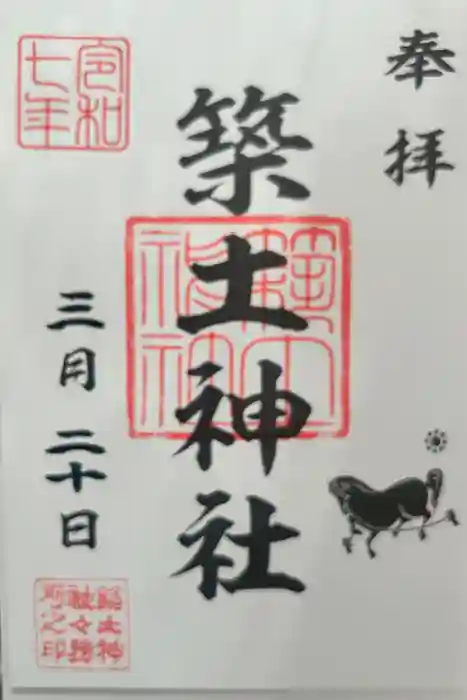 奉拝
築土神社
令和七年
三月二十日
築土神社
築土神社々務所之印